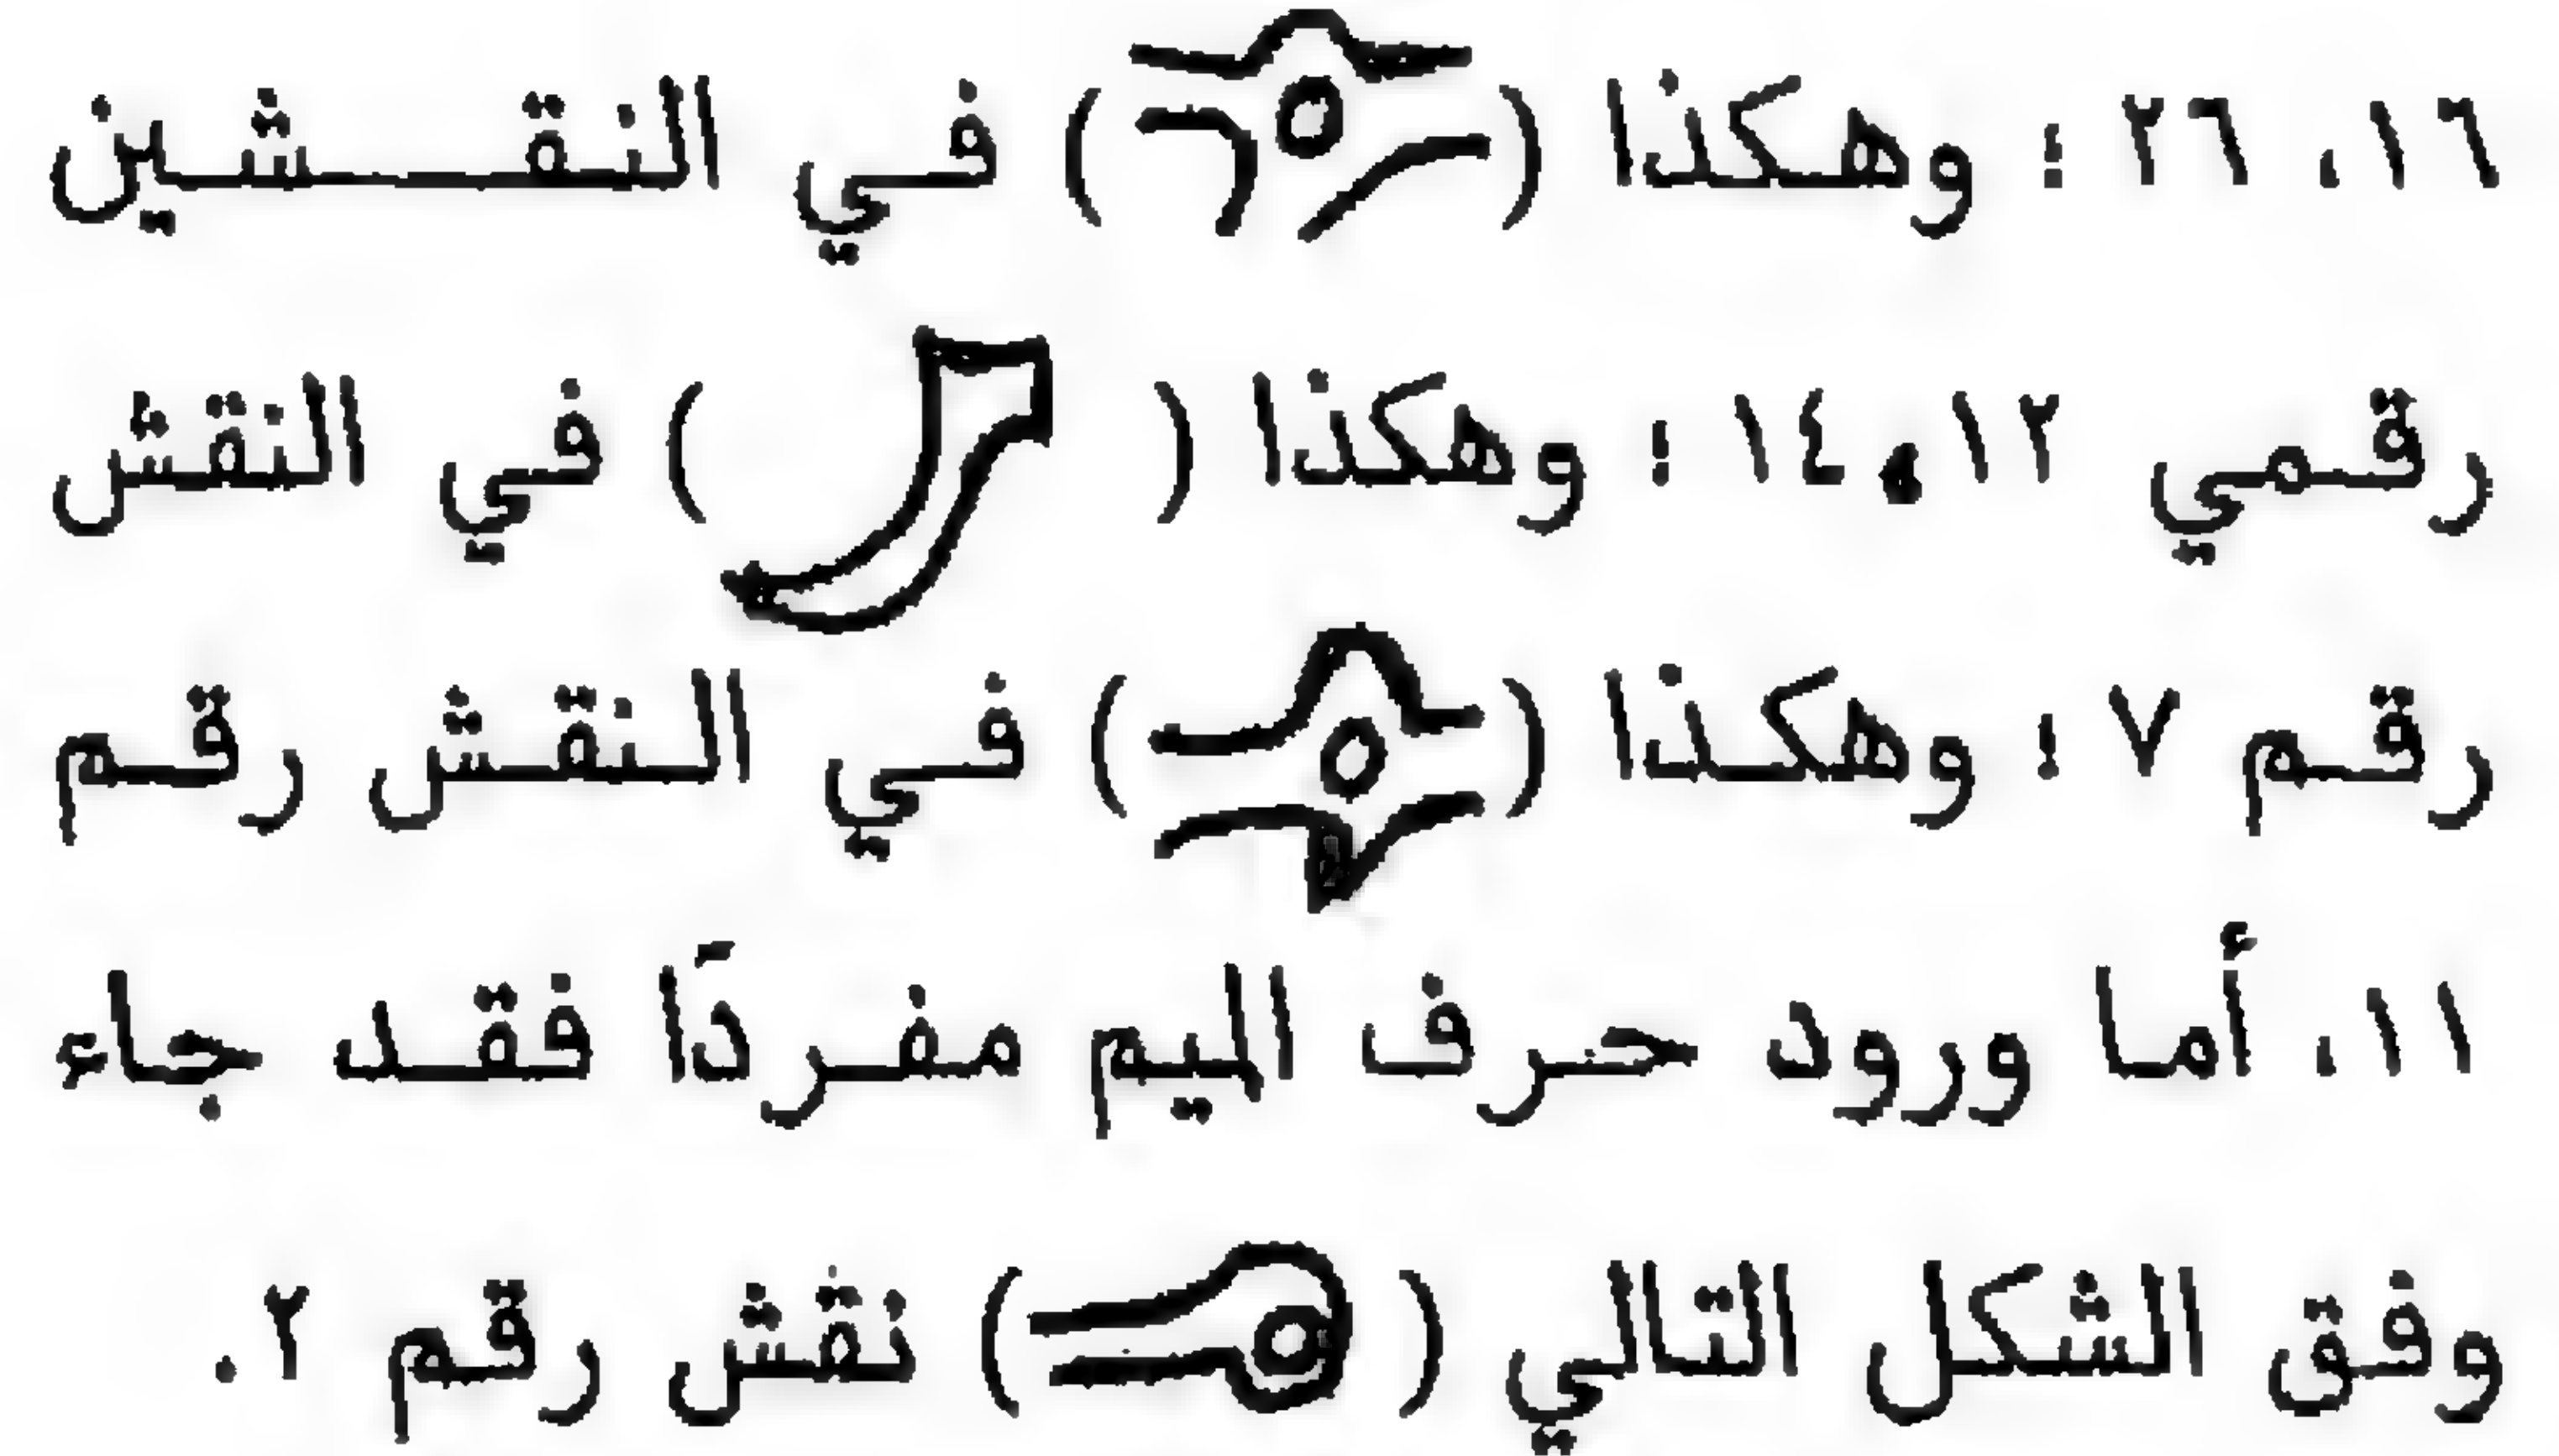 ١٦، ٢٦ ؛ وهكذا ( ) في النقشين
رقمي ١٢، ١٤ ؛ وهكذا ( ) في النقش
رقم ٧ ؛ وهكذا ( ) في النقش رقم
١١، أما ورود حرف الميم مفردَا فقد جاء
وفق الشكل التالي ( ) نقش رقم ٢ .